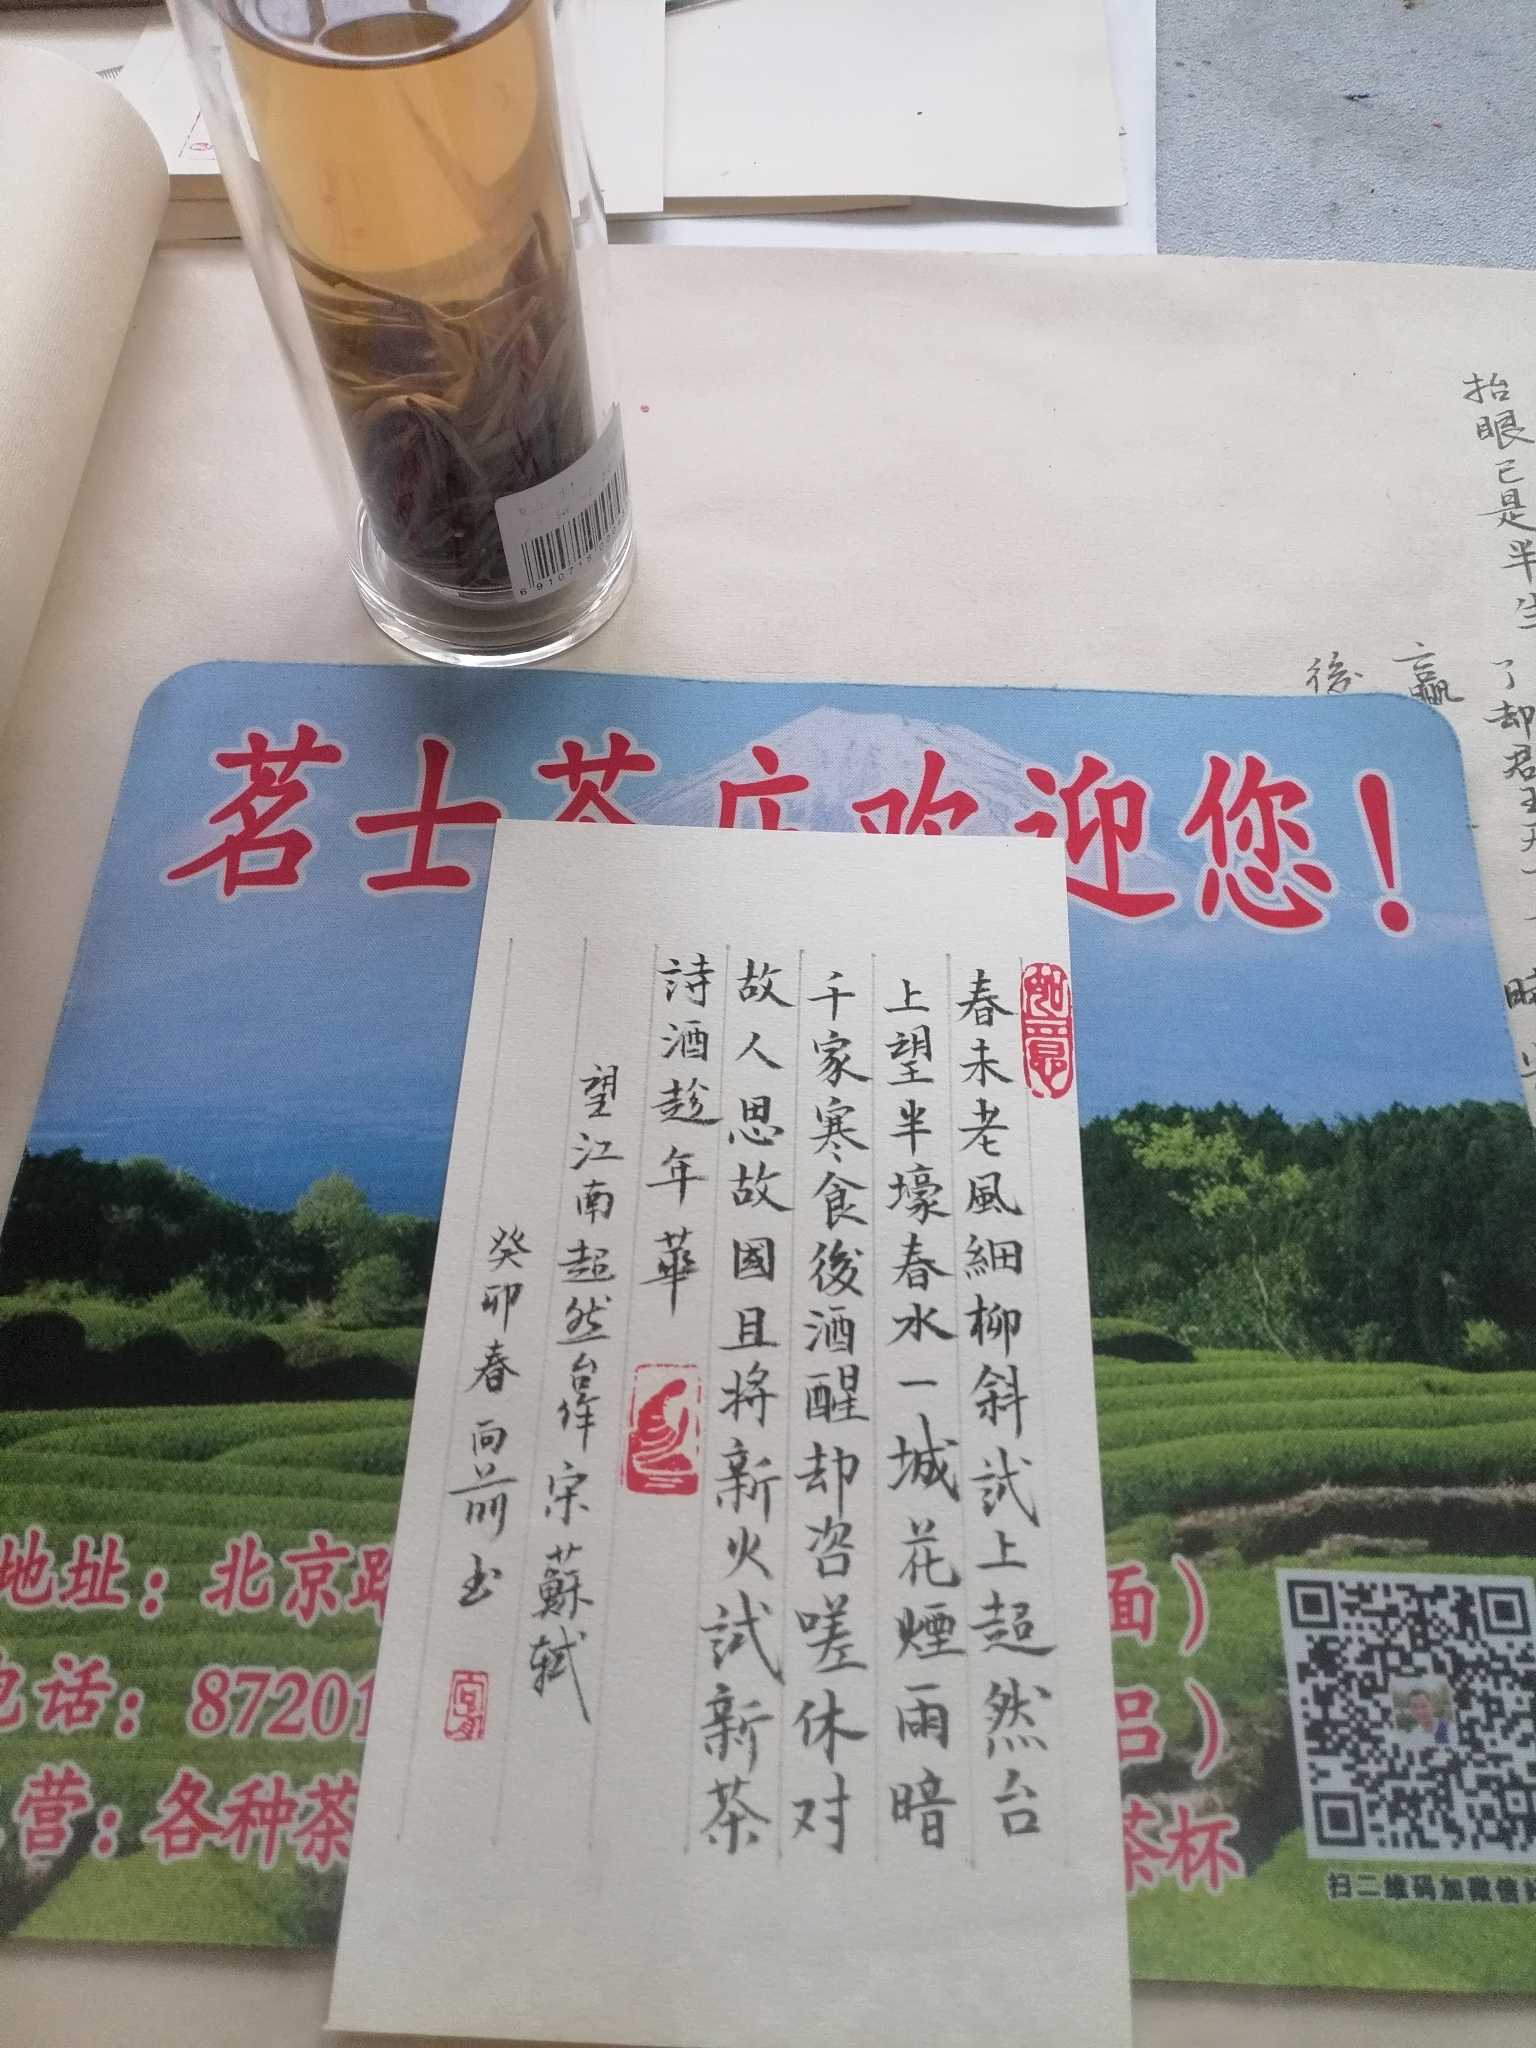 茗士茶庄欢迎您！
春未老風細柳斜試上超然台
上望半壕春水一城花煙雨暗
千家寒食後酒醒却咨嗟休对
故人思故國且将新火試新茶
詩酒趁年華
望江南超然台作宋蘇軾
癸卯春向前书
如意
地址：北京路
面）
电话：87201
吕）
营：各种茶
茶杯
扫二维码加微信
抬眼已是半生
了却君王天下
贏
後